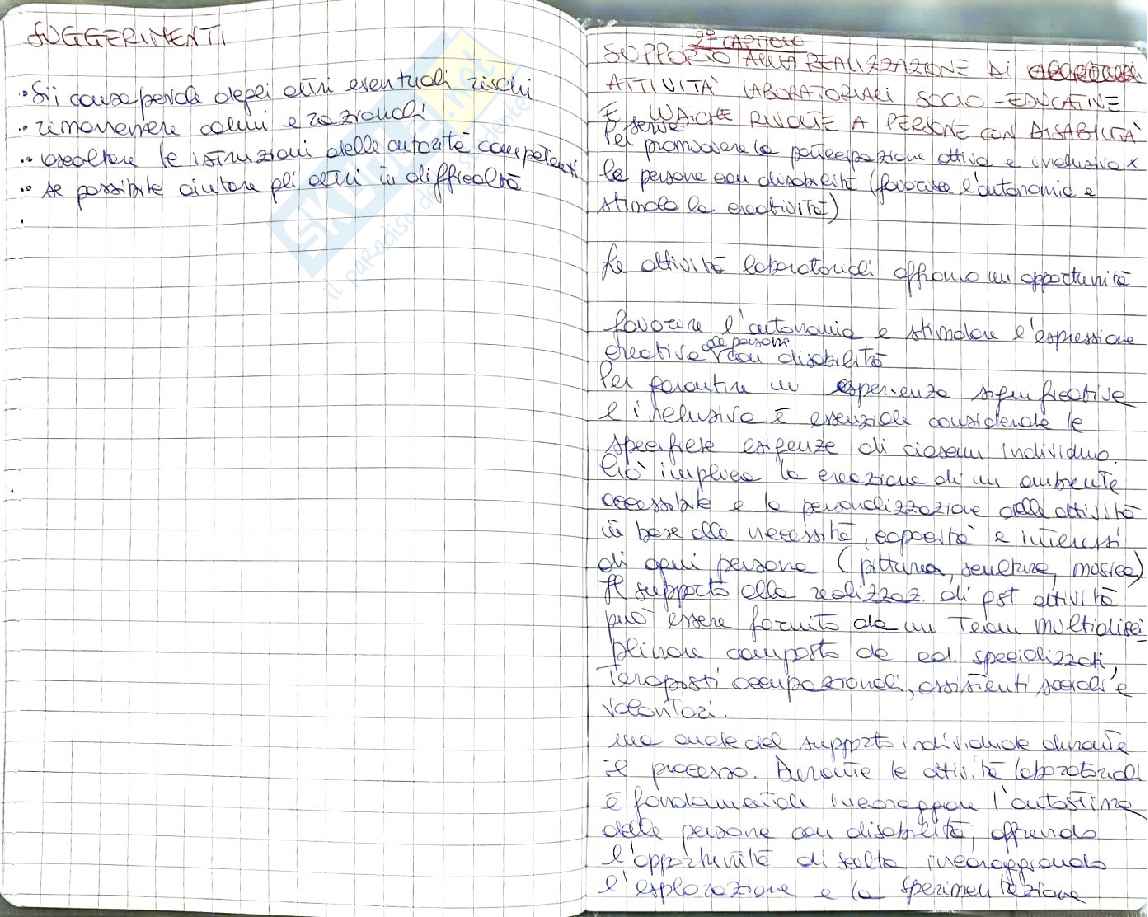 SUGGERIMENTI
• Sii consapevole degli altri eventuali rischi
• rimanere calmi e razionali
• ascoltare le istruzioni delle autorità competenti
• se possibile aiutare gli altri in difficoltà
2° CAPITOLO
SUPPORTO ALLA REALIZZAZIONE DI
ATTIVITÀ LABORATORIALI SOCIO-EDUCATIVE
E LUDICHE RIVOLTE A PERSONE CON DISABILITÀ
serve
Per promuovere la partecipazione attiva e inclusiva x
le persone con disabilità (favorire l'autonomia e
stimola la creatività)
Le attività laboratoriali offrono un opportunità
favorire l'autonomia e stimolare l'espressione
creativa delle persone con disabilità
Per garantire un esperienza significativa
e inclusiva è essenziale considerate le
specifiche esigenze di ciascun individuo.
Ciò implica la creazione di un ambiente
accessibile e la personalizzazione delle attività
in base alle necessità, capacità e interessi
di ogni persona (pittura, scultura, musica)
Il supporto alla realizzaz. di qst attività
può essere fornito da un Team multidisci
plinare composto da ed. specializzati,
Terapisti occupazionali, assistenti sociali e
volontari.
ma anche del supporto individuale durante
il processo. Durante le attività laboratoriali
è fondamentale incoraggiare l'autostima
delle persone con disabilità, offrendo
l'opportunità di scelta incoraggiando
l'esplorazione e la sperimentazione
SKUOLA.net
il paradiso dello studente